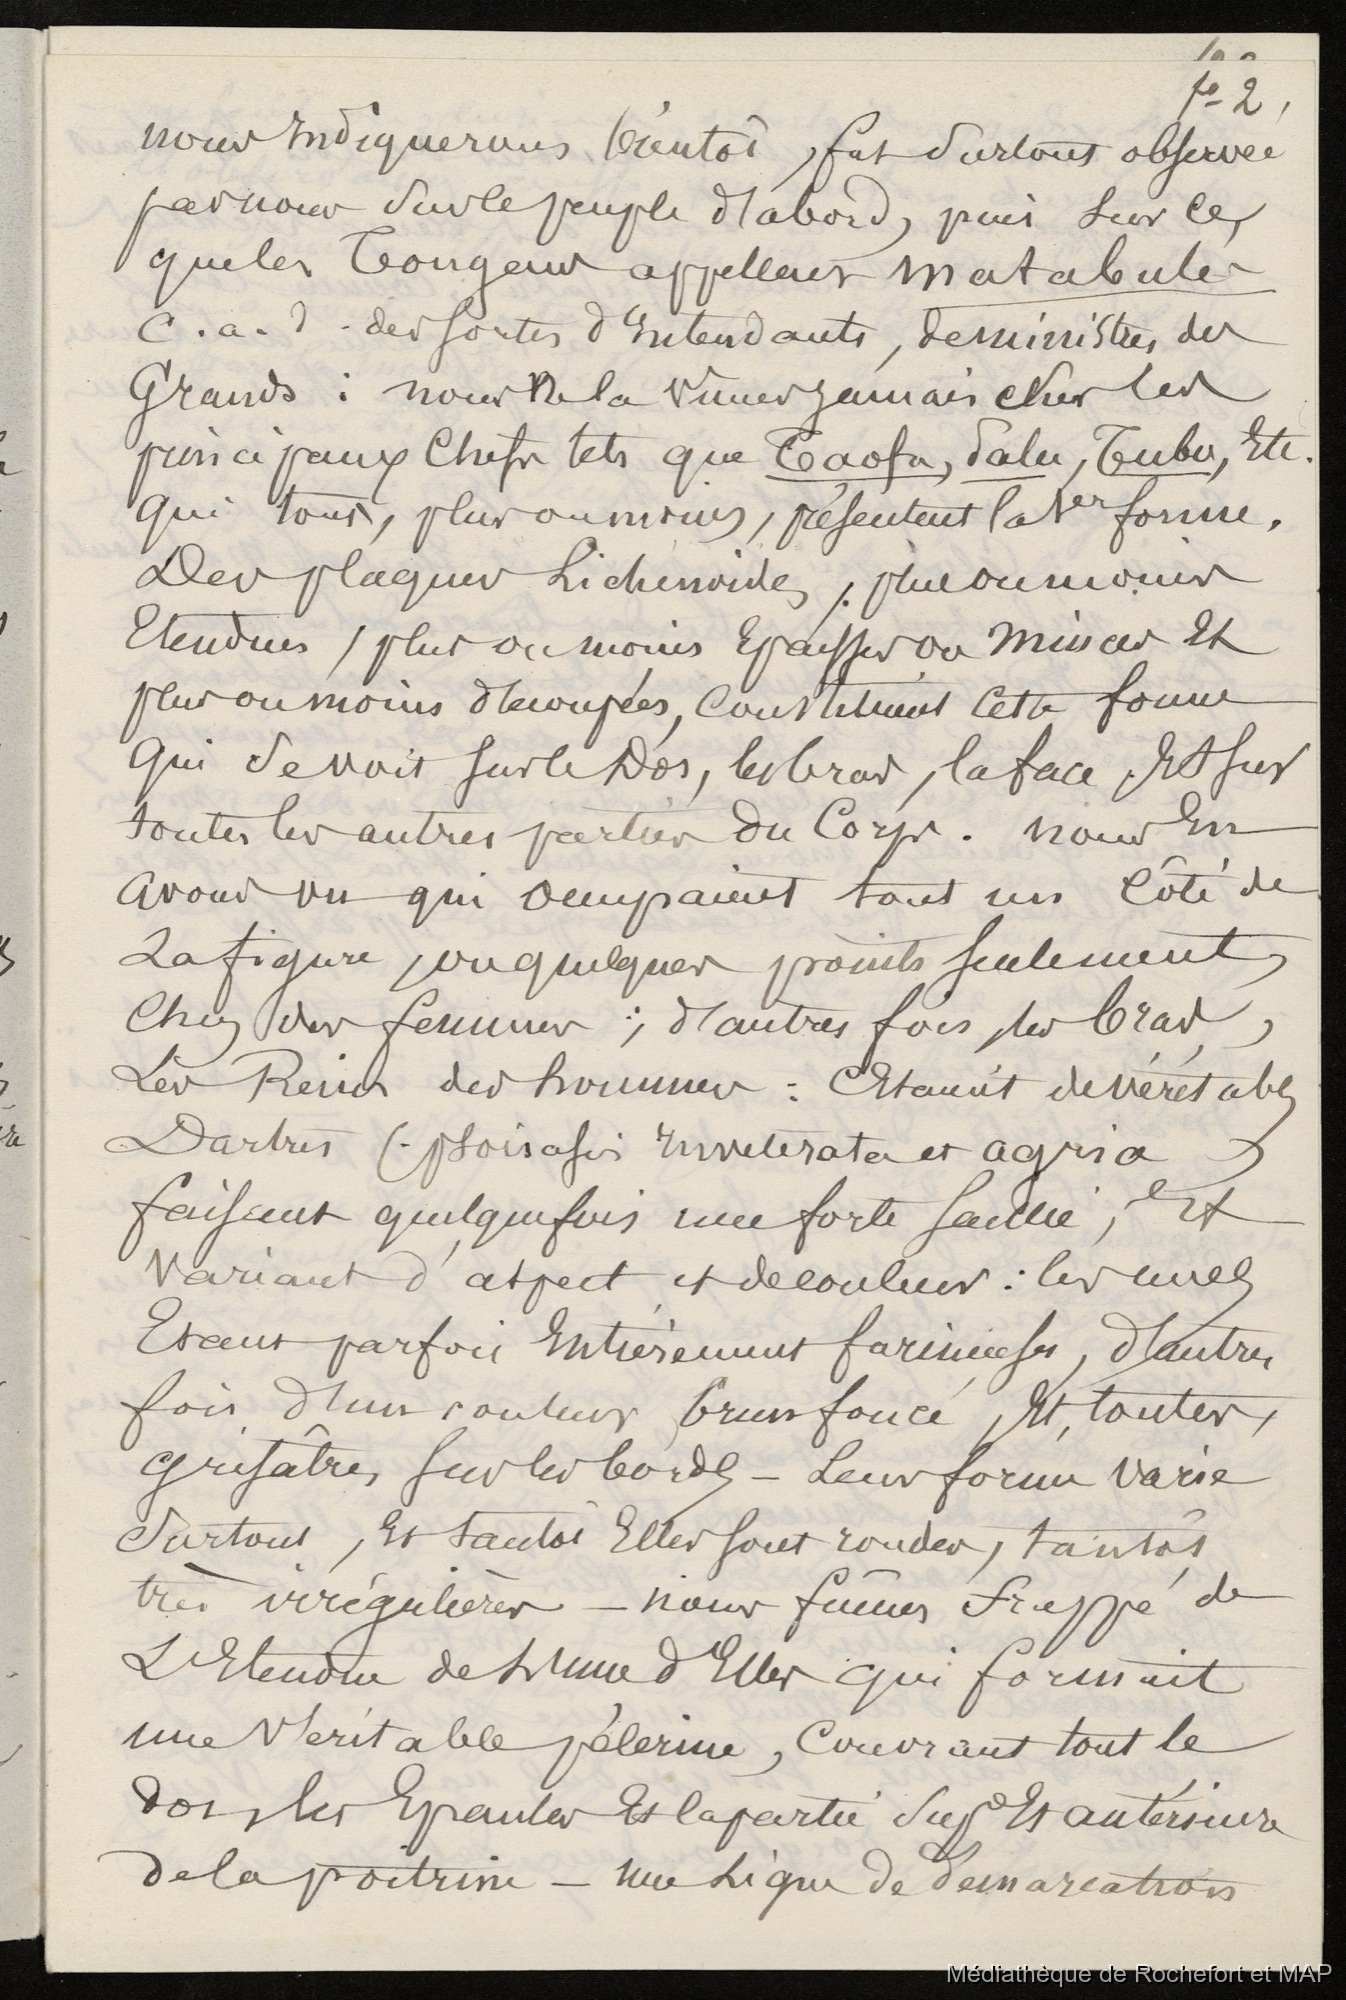 fo 2,
nous Indiquerons bientôt, fut surtout observée
par nous sur le peuple d'abord, puis sur ce
que les Tongans appellent matabules
c. a. d. des sortes d'Intendants, de ministres des
Grands : nous Ne la vîmes jamais chez les
principaux Chefs tels que Taofa, Tubu, Etc.
qui tous, plus ou moins, présentent la 1er forme.
Des plaques Lichenoides, plus ou moins
Etendues, plus ou moins Epaisses ou Minces Et
plus ou moins découpées, constituent cette forme
qui se voit sur le Dos, les bras, la face, Et sur
toutes les autres parties du Corps. nous En
avons vu qui occupaient tout un Côté de
La figure, ou quelques points seulement,
Chez des femmes ; d'autres fois, les bras,
Les Reins des hommes : C'étaient de véritables
Dartres (psoriasis Inveterata et agria)
faisant quelquefois une forte saillie, Et
variant d'aspect et de couleur : les unes
Etant parfois Entièrement farineuses, d'autres
fois d'un couleur brun foncé, Et, toutes,
grisâtres sur les bords – Leur forme varie
surtout, Et tantôt Elles sont rondes, tantôt
très irrégulières – nous fûmes frappé de
L'Etendue de L'une d'Elles qui formait
une véritable pélerine, couvrant tout le
dos, les Epaules Et la partie supre Et antérieure
de la poitrine – une Ligne de démarcation
Médiathèque de Rochefort et MAP